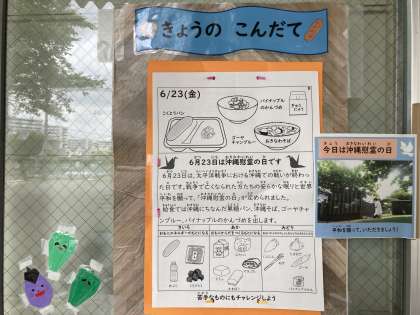 きょうの こんだて
6/23(金)
パイナップル
のかんづめ
ぎゅう
にゅう
こくとうパン
ゴーヤ
チャンプルー
おきなわそば
6月23日は沖縄慰霊の日です
6月23日は、太平洋戦争における沖縄での戦いが終わっ
た日です。戦争で亡くなられた方たちの安らかな眠りと世界
平和を願って、「沖縄慰霊の日」が定められました。
給食では沖縄にちなんだ黒糖パン、沖縄そば、ゴーヤチャ
ンプルー、パイナップルのかんづめを出します。
きいろ
あか
みどり
苦手なものにもチャレンジしよう
きょう おきなわ いれい ひ
今日は沖縄慰霊の日
平和を願って、いただきましょう!